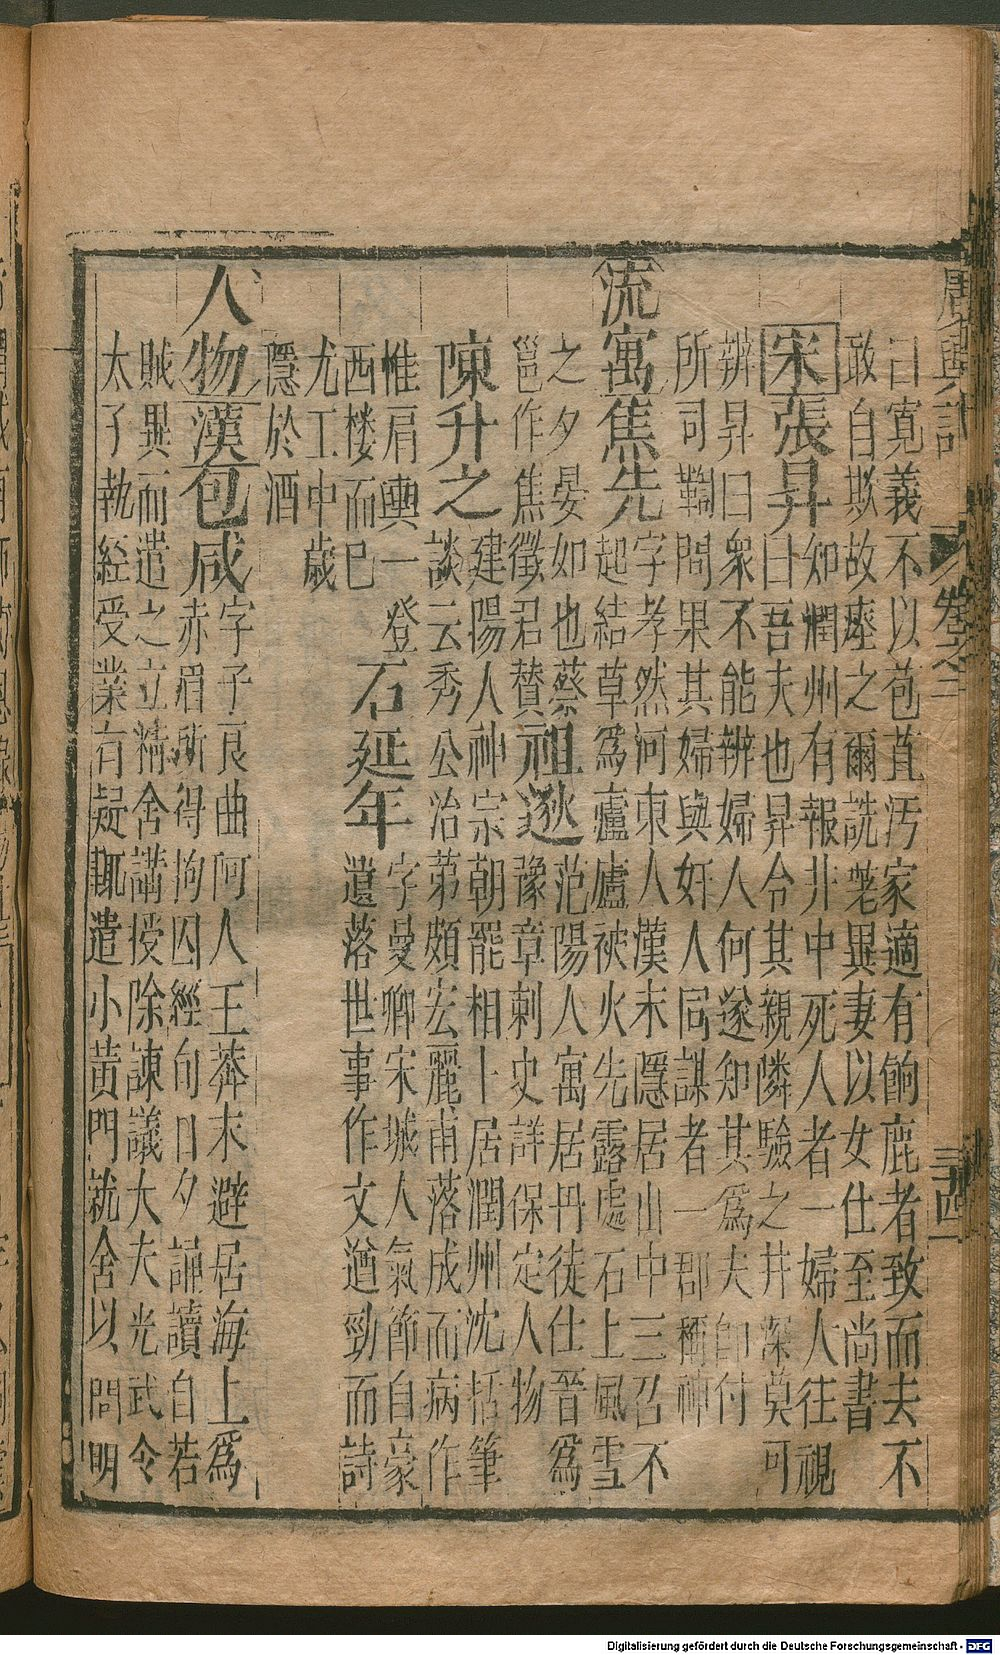 廣輿記 卷之二 三十四
曰寬義不以苞苴污家適有餉鹿者致而去不
敢自欺故座之爾詵荖異妻以女仕至尚書
宋張昇
知潤州有報井中死人者一婦人往視
曰吾夫也昇令其親隣驗之井深莫可
辨昇曰衆不能辨婦人何遂知其爲夫卽付
所司鞫問果其婦與奸人同謀者一郡稱神
流寓焦先
字孝然河東人漢末隱居山中三召不
起結草爲廬廬被火先露處石上風雪
之夕晏如也蔡
邕作焦徵君贊
祖逖
范陽人寓居丹徒仕晉爲
豫章刺史詳保定人物
陳升之
建陽人神宗朝罷相卜居潤州沈括筆
談云秀公治第頗宏麗甫落成而病作
惟肩輿一登
西楼而已
石延年
字曼卿宋城人氣節自豪
遺落世事作文遒勁而詩
尤工中歲
隱於酒
人物漢包咸
字子良曲阿人王莽末避居海上爲
赤眉所得拘囚經旬日夕誦讀自若
賊異而遣之立精舍講授除諫議大夫光武令
太子執經受業有疑輒遣小黃門就舍以問明
Digitalisierung gefördert durch die Deutsche Forschungsgemeinschaft - DFG